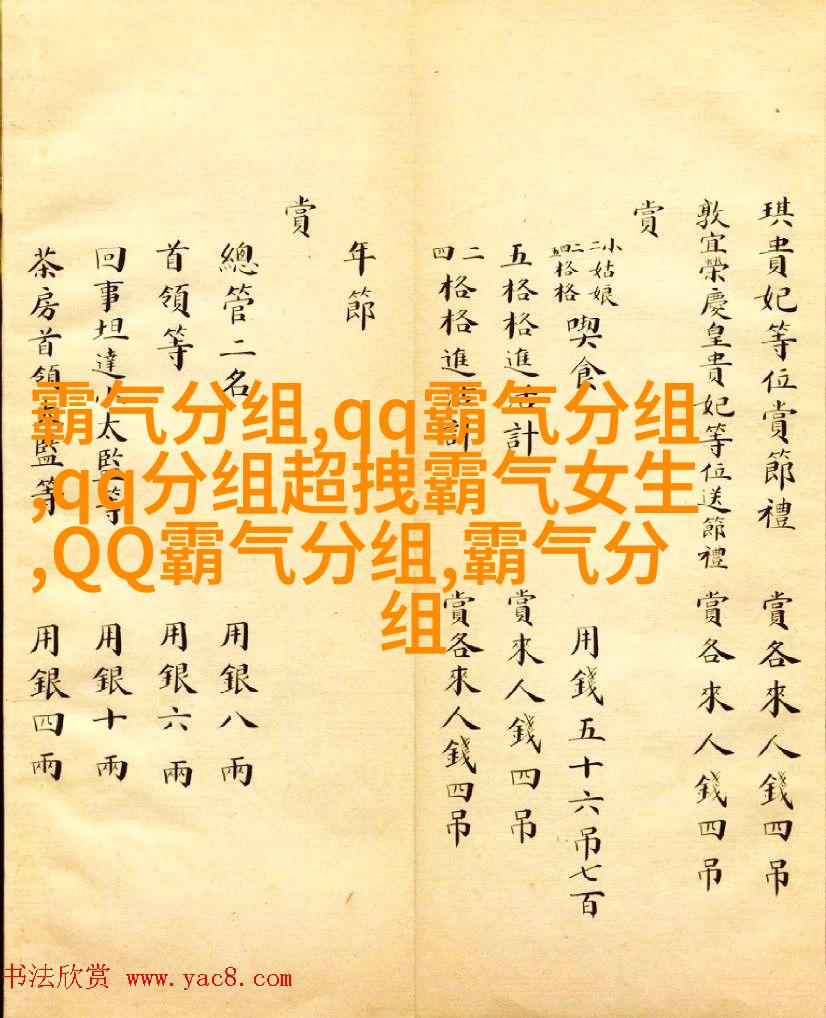 琪貴妃等位賞節禮 賞各來人錢四吊
敦宜榮慶皇貴妃等位送節禮 賞各來人錢四吊
賞
小姑娘 格格 喫食 用錢五十六吊七百
五格格進活計 賞來人錢四吊
二四格格進活計 賞各來人錢四吊
年節
賞
總管二名 用銀八兩
首領等 用銀六兩
回事坦達小太監等 用銀十兩
茶房首領太監等 用銀四兩
霸气分组,qq霸气分组
,qq分组超拽霸气女生
,QQ霸气分组,霸气分
组
书法欣赏 www.yac8.com